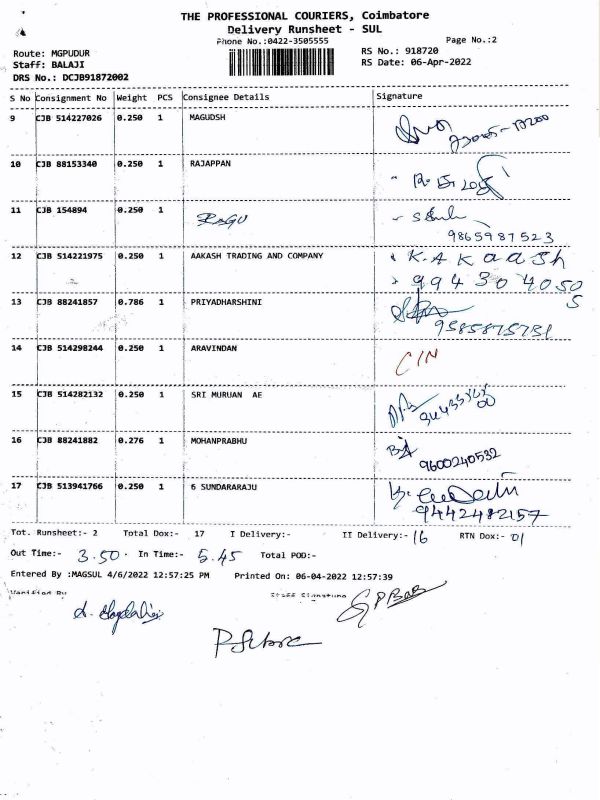 THE PROFESSIONAL COURIERS, Coimbatore
Delivery Runsheet - SUL
Phone No.:0422-3505555
Page No.:2
Route: MGPUDUR
RS No.: 918720
Staff: BALAJI
RS Date: 06-Apr-2022
DRS No.: DCJB91872002
S No Consignment No Weight PCS Consignee Details Signature
9 CJB 514227026 0.250 1 MAGUDSH
10 CJB 88153340 0.250 1 RAJAPPAN
11 CJB 154894 0.250 1 RAGU
9865987523
12 CJB 514221975 0.250 1 AAKASH TRADING AND COMPANY K. A KAASH
99430 4050
5
13 CJB 88241857 0.786 1 PRIYADHARSHINI
9585875731
14 CJB 514298244 0.250 1 ARAVINDAN CIN
15 CJB 514282132 0.250 1 SRI MURUAN AE
16 CJB 88241882 0.276 1 MOHANPRABHU
9600240532
17 CJB 513941766 0.250 1 6 SUNDARARAJU
9442482157
Tot. Runsheet:- 2 Total Dox:- 17 I Delivery:- II Delivery:- 16 RTN Dox:- 01
Out Time:- 3.50 In Time:- 5.45 Total POD:-
Entered By :MAGSUL 4/6/2022 12:57:25 PM Printed On: 06-04-2022 12:57:39
Verified By Staff Signature